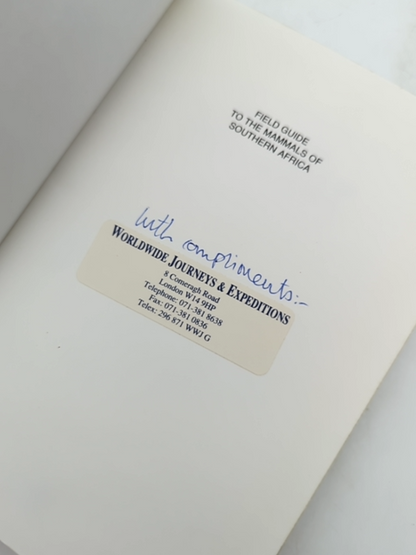 FIELD GUIDE
TO THE MAMMALS OF
SOUTHERN AFRICA
With compliments:-
WORLDWIDE JOURNEYS & EXPEDITIONS
8 Comeragh Road
London W14 9HP
Telephone: 071-381 8638
Fax: 071-381 0836
Telex: 296 871 WWJ G